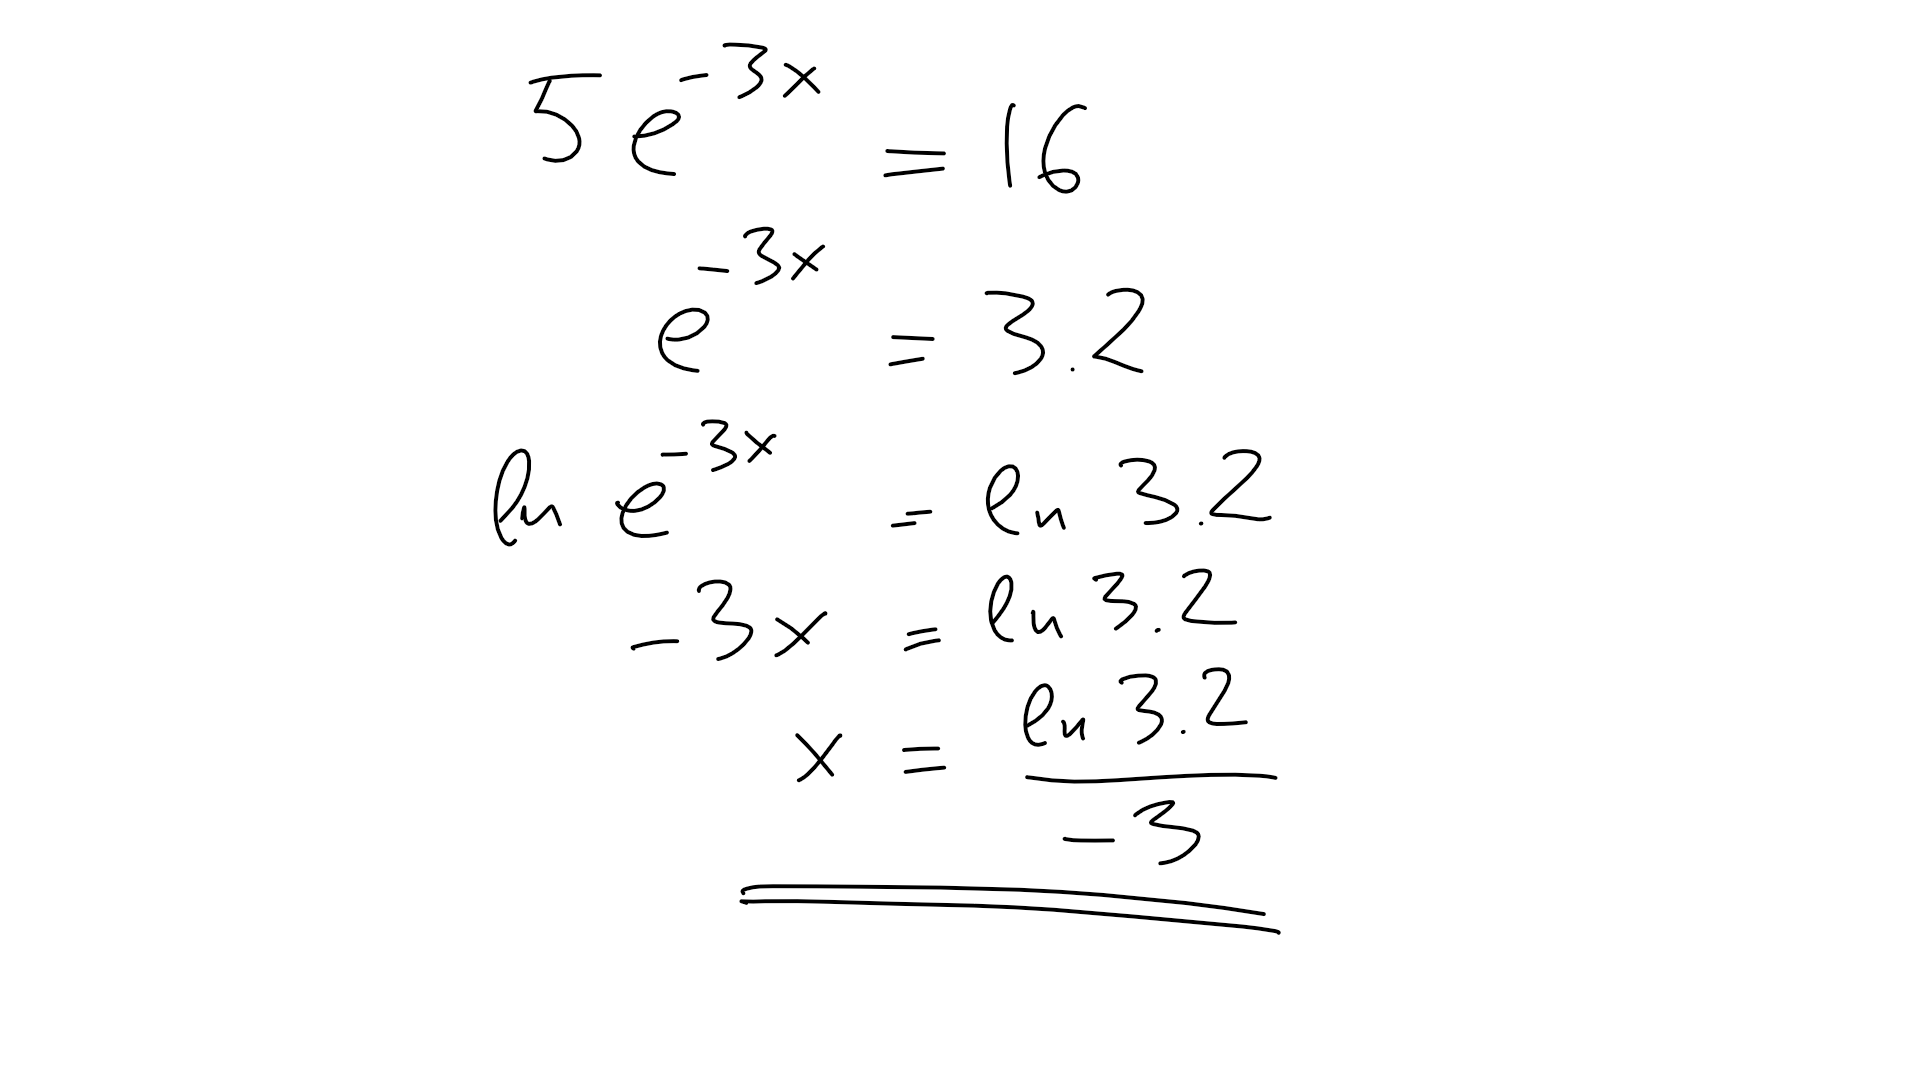 5e^{-3x} = 16
e^{-3x} = 3.2
ln e^{-3x} = ln 3.2
-3x = ln 3.2
x = \frac{ln 3.2}{-3}